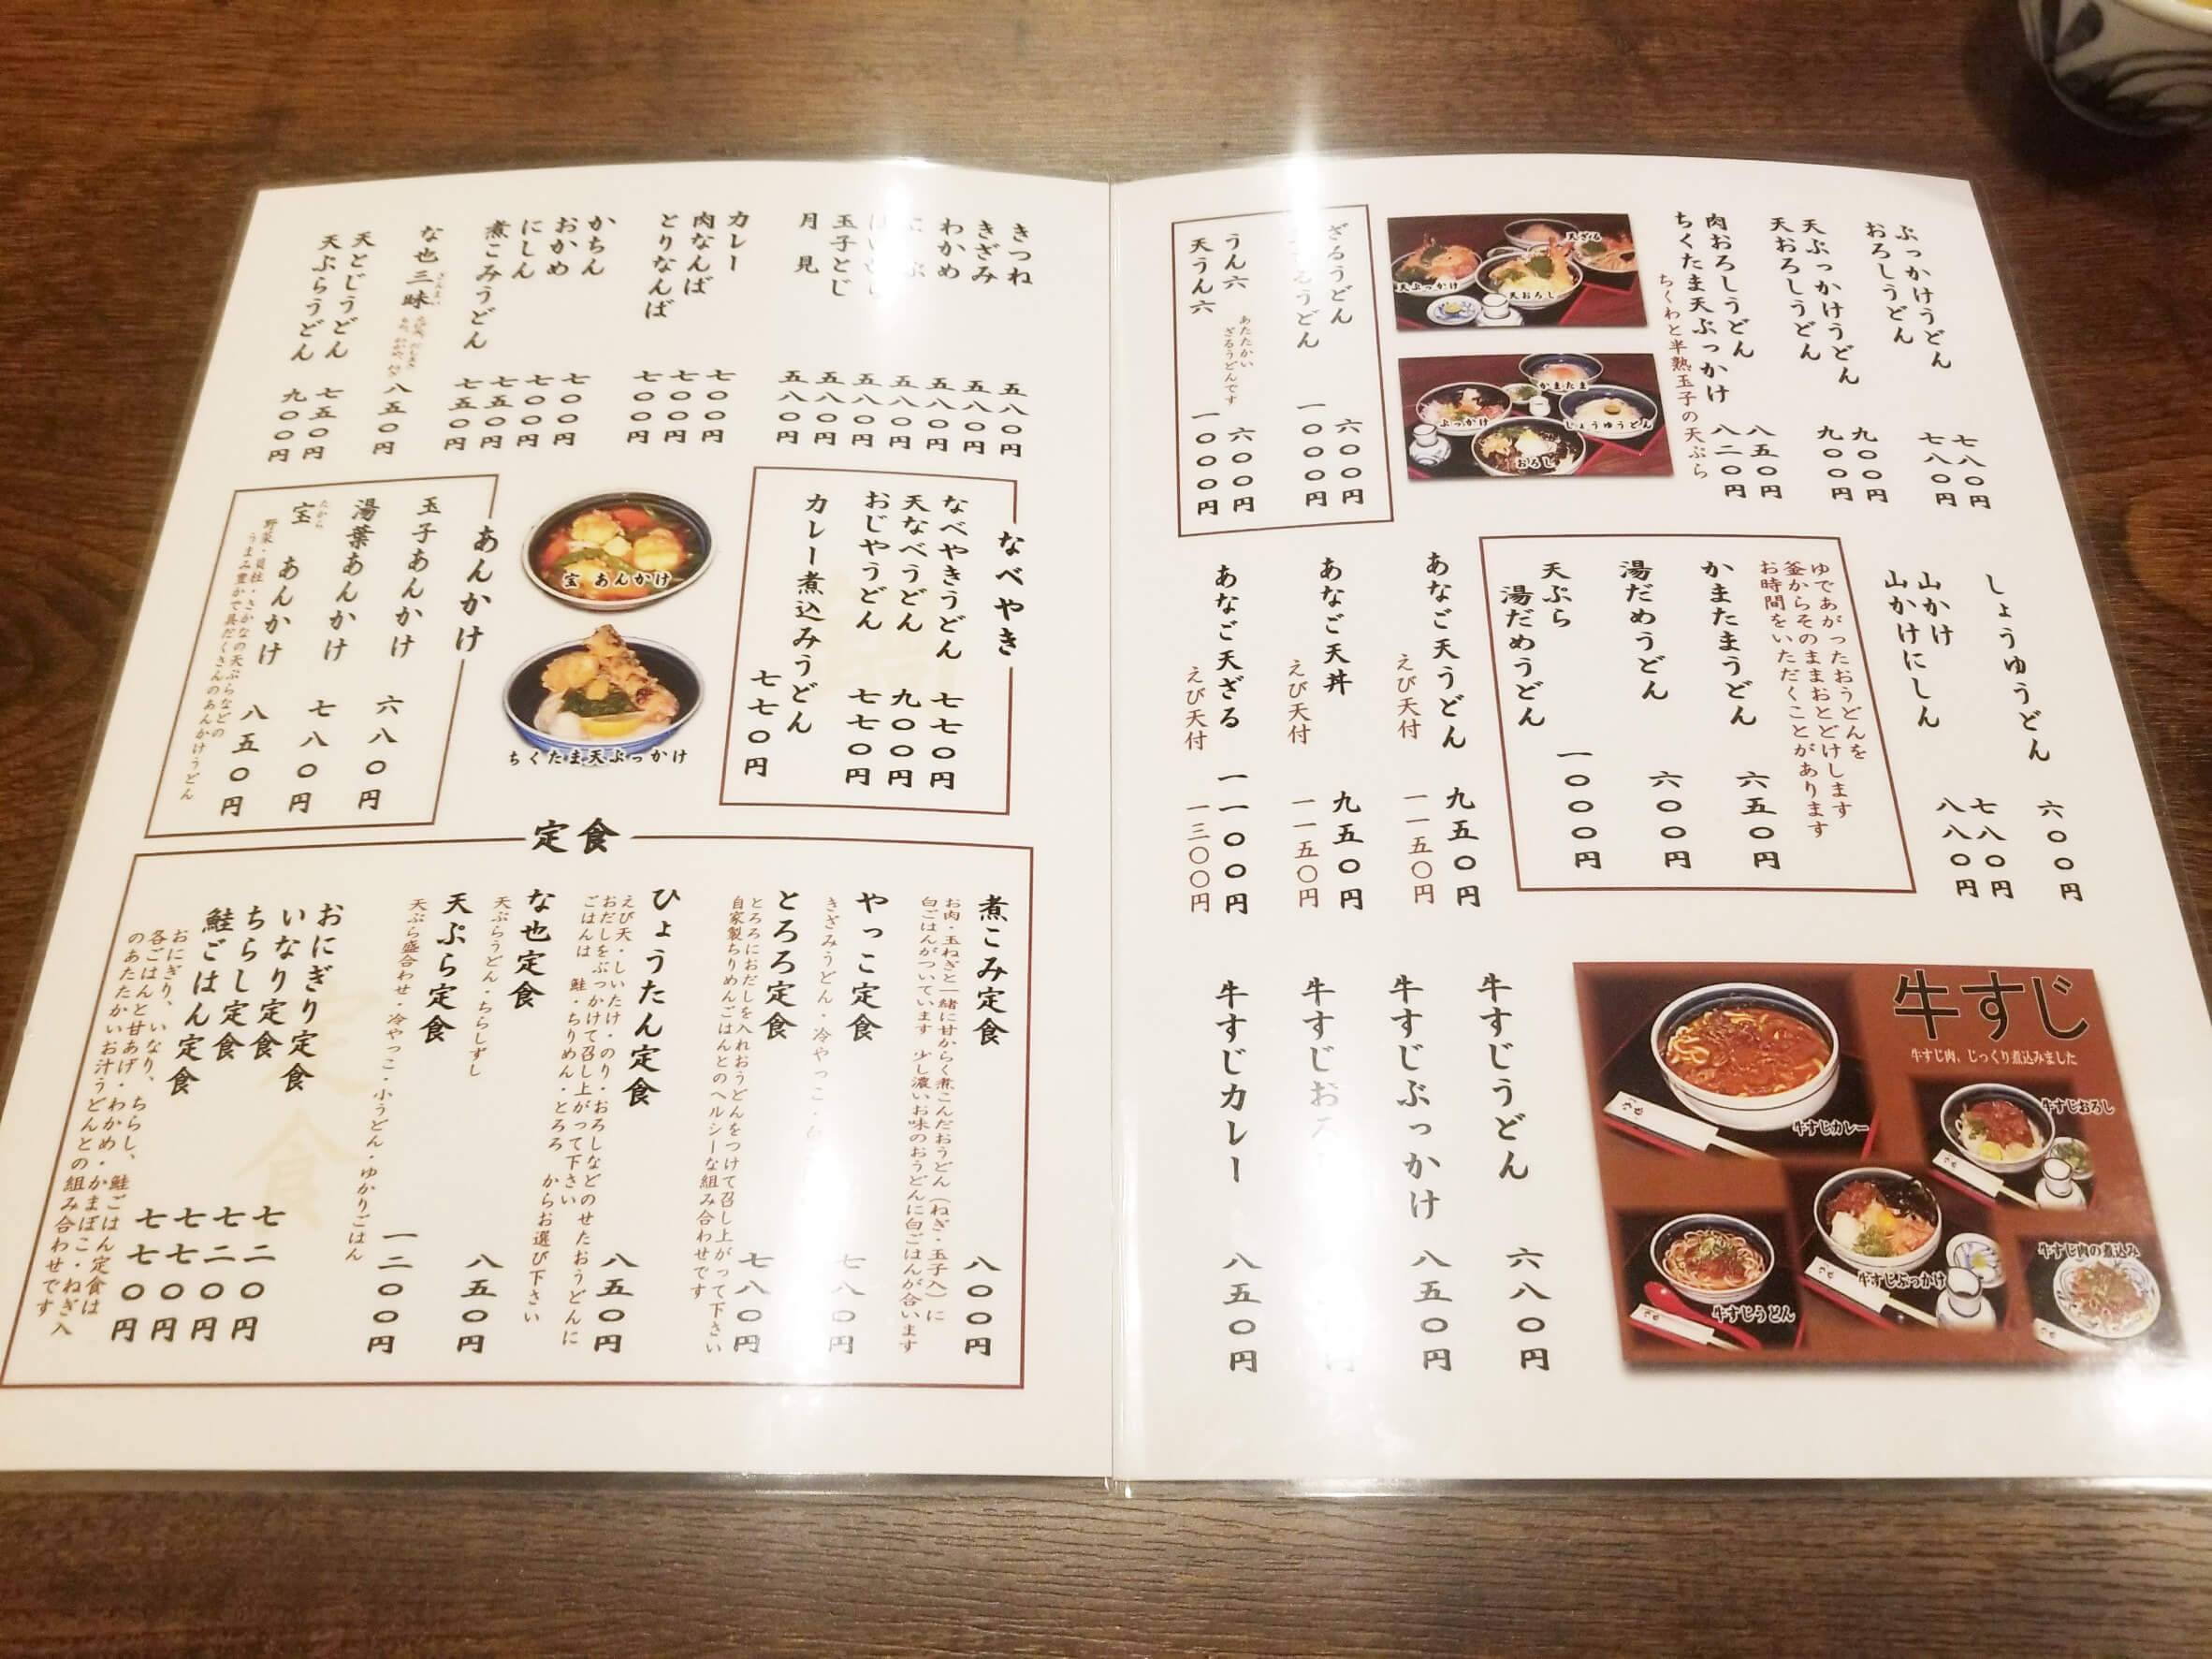 ぶっかけうどん 七八〇円
おろしうどん 七八〇円
天ぶっかけうどん 九〇〇円
天おろしうどん 九〇〇円
肉おろしうどん 八五〇円
ちくたま天ぶっかけ 八二〇円
ちくわと半熟玉子の天ぷら
天ざる
天ぶっかけ
天おろし
かまたま
ぶっかけ
しょうゆうどん
おろし
ざるうどん 六〇〇円
うどん 一〇〇〇円
うん六 六〇〇円
あたたかい
ざるうどんです
天うん六 一〇〇〇円
しょうゆうどん 六〇〇円
山かけ 七八〇円
山かけにしん 八八〇円
ゆであがったおうどんを
釜からそのままおとどけします
お時間をいただくことがあります
かまたまうどん 六五〇円
湯だめうどん 六〇〇円
天ぷら
湯だめうどん 一〇〇〇円
あなご天うどん 九五〇円
えび天付 一一五〇円
あなご天丼 九五〇円
えび天付 一一五〇円
あなご天ざる 一一〇〇円
えび天付 一三〇〇円
牛すじ
牛すじ肉、じっくり煮込みました
牛すじカレー
牛すじおろし
牛すじぶっかけ
牛すじ肉の煮込み
牛すじうどん
牛すじうどん 六八〇円
牛すじぶっかけ 八五〇円
牛すじお
牛すじカレー 八五〇円
きつね 五八〇円
きざみ 五八〇円
わかめ 五八〇円
五八〇円
五八〇円
玉子とじ 五八〇円
月見 五八〇円
カレー 七〇〇円
肉なんば 七〇〇円
とりなんば 七〇〇円
かちん 七〇〇円
おかめ 七〇〇円
にしん 七五〇円
煮こみうどん 七五〇円
な也三昧 八五〇円
さんまい
天とじうどん 七五〇円
天ぷらうどん 九〇〇円
なべやき
なべやきうどん 七七〇円
天なべうどん 九〇〇円
おじやうどん 七七〇円
カレー煮込みうどん 七七〇円
宝 あんかけ
ちくたま天ぶっかけ
あんかけ
玉子あんかけ 六八〇円
湯葉あんかけ 七八〇円
宝 あんかけ 八五〇円
たから
野菜・貝柱・さかなの天ぷらなどの
うまみ豊かで具だくさんのあんかけうどん
定食
煮こみ定食 八〇〇円
お肉・玉ねぎと一緒に甘からく煮こんだおうどん（ねぎ・玉子入）に
白ごはんがついています 少し濃いお味のおうどんに白ごはんが合います
やっこ定食 七八〇円
きざみうどん・冷やっこ・
とろろ定食 七八〇円
とろろにおだしを入れおうどんをつけて召し上がって下さい
自家製ちりめんごはんとのヘルシーな組み合わせです
ひょうたん定食 八五〇円
えび天・しいたけ・のり・おろしなどのせたおうどんに
おだしをぶっかけて召し上がって下さい
ごはんは 鮭・ちりめん・とろろ からお選び下さい
な也定食 八五〇円
天ぷらうどん・ちらしずし
天ぷら定食 一二〇〇円
天ぷら盛合わせ・冷やっこ・小うどん・ゆかりごはん
おにぎり定食 七二〇円
いなり定食 七二〇円
ちらし定食 七七〇円
鮭ごはん定食 七七〇円
おにぎり、いなり、ちらし、鮭ごはん定食は
各ごはんと甘あげ・わかめ・かまぼこ・ねぎ入
のあたたかいお汁うどんとの組み合わせです